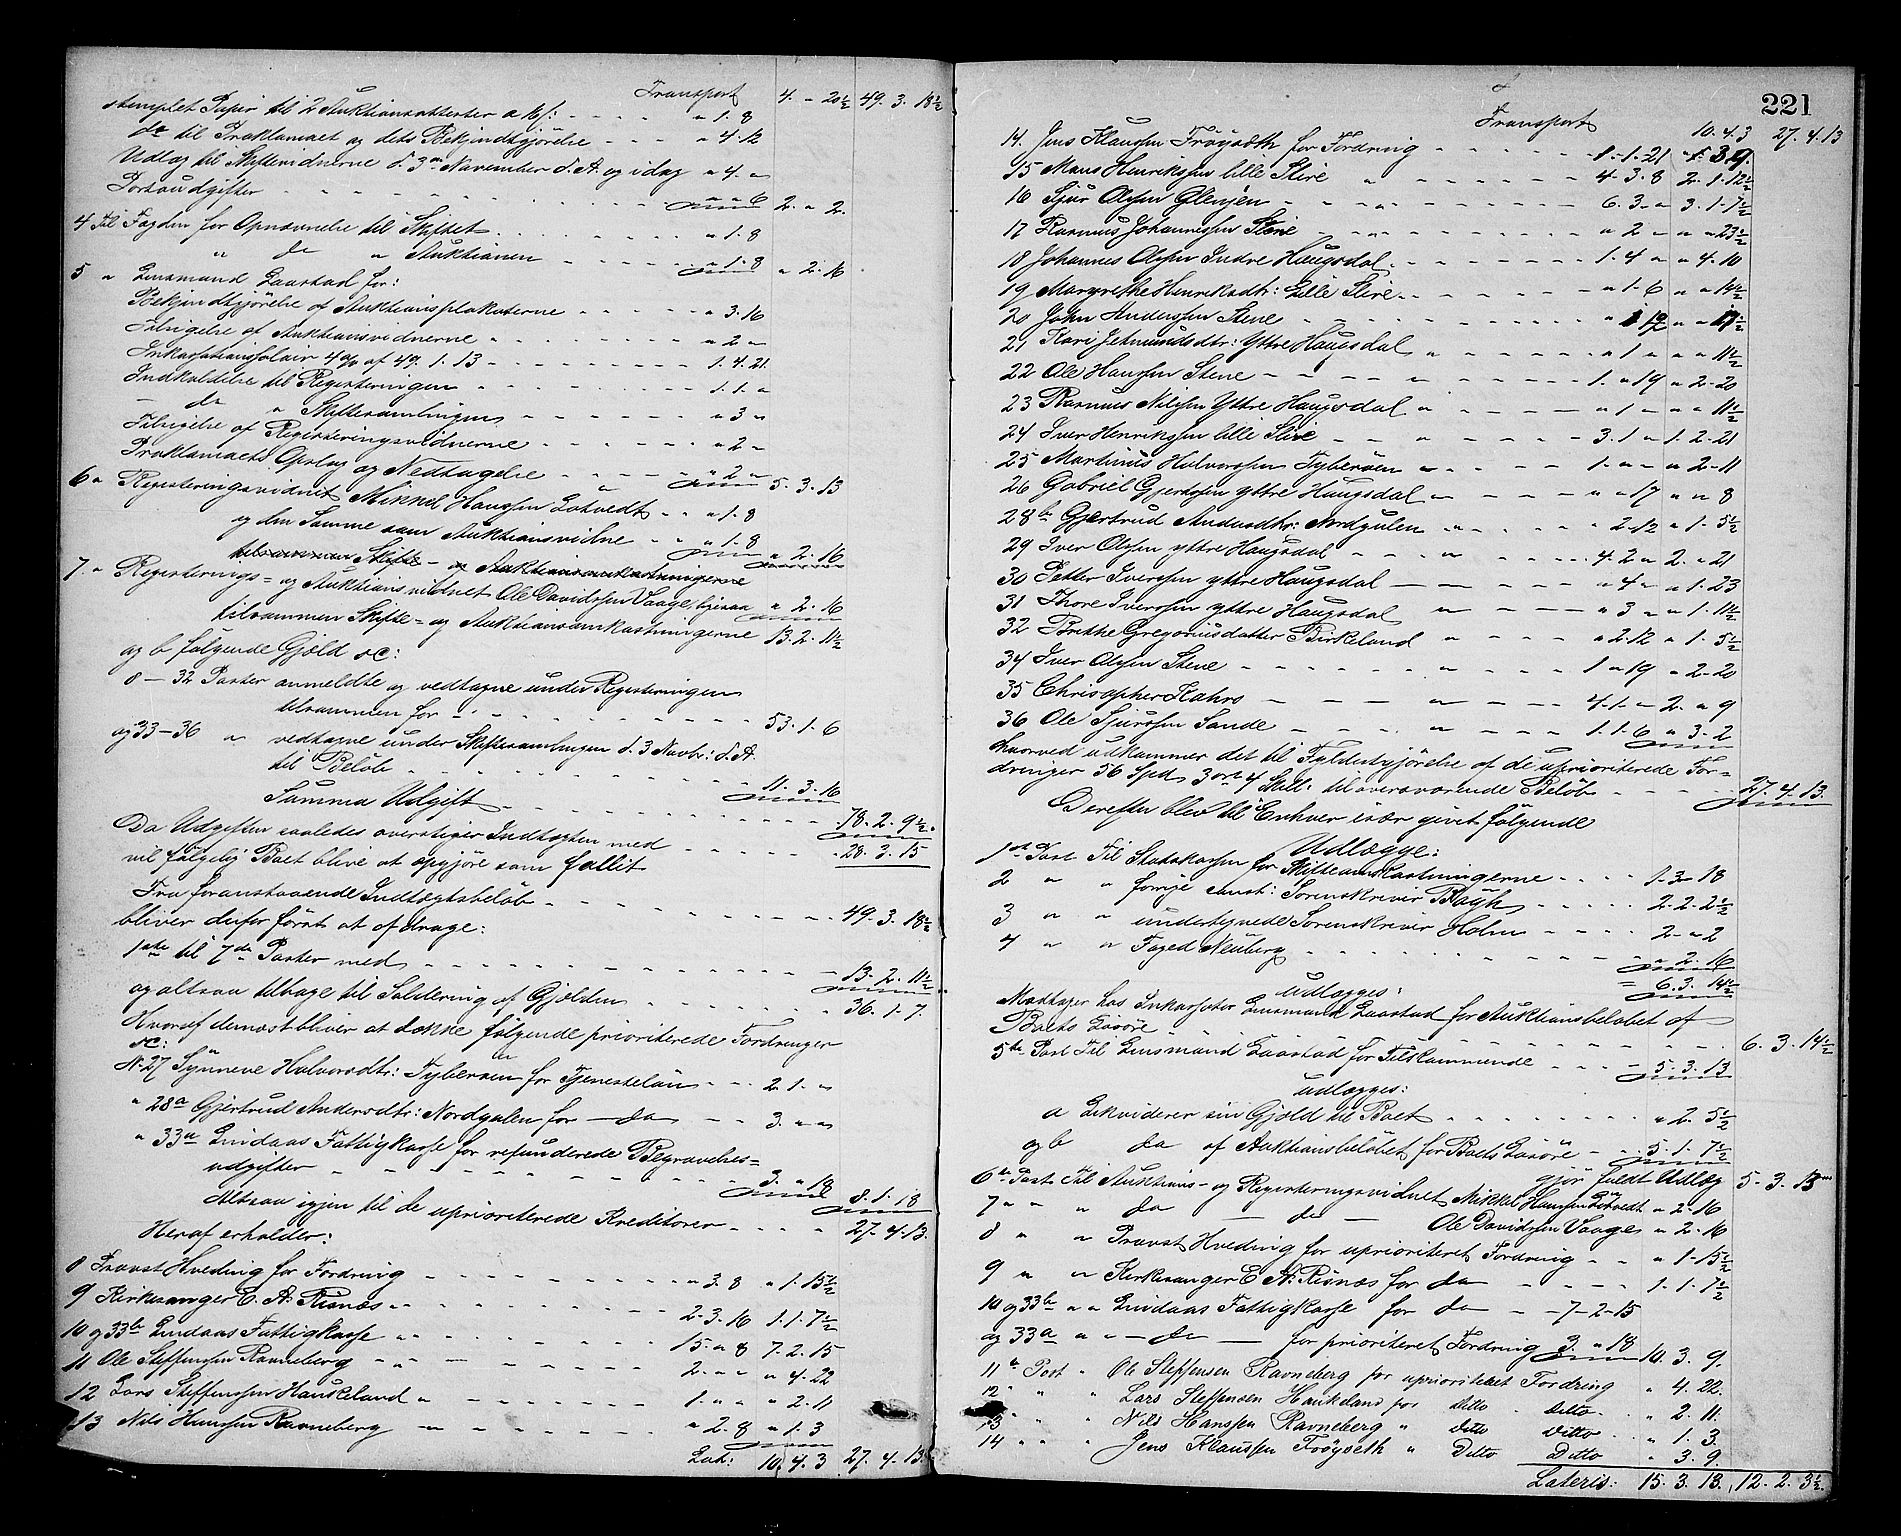 Transport 4. " 20½ 49. 3. 18½
stemplet Papir til 2 Auktionsattester a 16/: " 1. 8
do til Proklamaet og dets Bekjendtgjörelse " 4. 12
Udlæg til Skiftevidnerne d. 3die November d. A. og idag " 4. "
Portoudgifter " " 6 2. " 2.
4 Til Fogden for Opnævnelse til Skiftet " 1. 8
" do " Auktionen " 1. 8 " 2. 16
5 " Lensmand Laastad for:
Bekjendtgjörelse af Auktionsplakaterne " 3. 16
Tilsigelse af Auktionsvidnerne " 2 "
Inkassationssalair 4 % af 49. 1. 13 1. 4. 21
Indkaldelse til Registeringen 1. 1. "
do " Skiftesamlingen " 3 "
Tilsigelse af Registeringsvidnerne " 2 "
Proklamaets Opslag og Nedtagelse " 2 " 5. 3. 13
6 " Registeringsvidnet Mikkel Hanssen Lotvedt " 1. 8
og den Samme som Auktionsvidne " 1. 8 " 2. 16
tilsammen Skifte- og Auktionsomkostningerne
7. " Registerings- og Auktionsvidnet Ole Davidssen Vaage ligesaa " 2. 16
tilsammen Skifte- og Auktionsomkostningerne 13. 2. 11½
og b følgende Gjeld sc:
8 — 32 Poster anmeldte og vedtagne under Registeringen
tilsammen for 53. 1. 6
og 33—36 " vedtagne under Skiftesamlingen d. 3 Novbr: d. A.
til Beløb 11. 3. 16
Summa Udgift 78. 2. 9½.
Da Udgiften saaledes overstiger Indtægten med 28. 3. 15
vil følgelig Boet blive at opgjöre som fallit
Fra foranstaaende Indtægtsbeløb 49. 3. 18½
bliver derfor først at afdrage:
1ste til 7de Poster med 13. 2. 11½
og altsaa tilbage til Saldering af Gjelden 36. 1. 7.
Hvoraf dernæst bliver at dække følgende prioriterede Fordringer
sc:
No 27 Synneve Halvorsdtr: Tybersøen for Tjenesteløn 2. 1. "
" 28a Gjertrud Andersdtr: Nordgulen for — do — 3. " "
" 33a Lindaas Fattigkasse for refunderede Begravelses=
udgifter 3. " 18 8. 1. 18
Altsaa igjen til de uprioriterede Kreditorer 27. 4. 13.
Heraf erholder:
8 Provst Hveding for Fordring " 3. 8 " 1. 15½
9 Kirkesanger E. A. Risnæs " 2. 3. 16 1. 1. 7½
10 og 33b Lindaas Fattigkasse " 15. " 8 7. 2. 15
11 Ole Steffenssen Ravneberg " 2. " " " 4. 22
12 Lars Steffenssen Haukeland " 1. " " " 2. 11
13 Nils Hanssen Ravneberg " " 2. 8 " 1. 3
Lat: 10. 4. 3 27. 4. 13.
221
Transport 10. 4. 3 27. 4. 13
14. Jens Klaussen Frøyseth for Fordring 1. 1. 21 " 3 9.
15 Mons Henrikssen lille Stire " 4. 3. 8 2. 1. 12½
16 Sjur Olssen Glenjen " 6. 3. " 3. 1. 7½
17 Rasmus Johannessen Stene " " 2 " " " 23½
18 Johannes Olssen Indre Haugsdal 1. 4 " " 4. 10
19 Margrethe Henriksdtr: Lille Stire " 1. 6 " " 14½
20 John Anderssen Stene
21 Kari Jetmundsdtr: Yttre Haugsdal " " 1 " " " 11½
22 Ole Hanssen Stene " 1. " 19 " 2. 20
23 Rasmus Nilssen Yttre Haugsdal " " 1 " " " 11½
24 Iver Henrikssen lille Stire " 3. 1 " 1. 2. 21
25 Martinus Halvorssen Tybersøen " 1. " " " 2. 11
26 Gabriel Gjertssen yttre Haugsdal " " " 17 " " 8
28b Gjertrud Andersdtr: Nordgulen " " 2. 12 " 1. 5½
29 Iver Olssen yttre Haugsdal " 4. 2 " 2. " 21
30 Petter Iverssen yttre Haugsdal " " 4 " " 1. 23
31 Thore Iverssen yttre Haugsdal " " 3 " " 1. 11½
32 Brithe Gregoriusdatter Birkeland " " 2. 12 " 1. 5½
34 Iver Olssen Stene " 1 " 19 " 2. 20
35 Christopher Kahrs " 4. 1. " 2. " 9
36 Ole Sjurssen Sande " 1. 1. 6 " 3. 2
hvorved udkommer det til Fyldestgjörelse af de uprioriterede For=
dringer 56 Spd 3 ort 4 Skill: tiloversværende Beløb 27. 4. 13.
Derefter blev til Enhver især givet følgende
Udlægge:
1ste Post Til Statskassen for Skifteomkostningerne 1. 3. 18
2 " " forrige const: Sorenskriver Bøgh 2. 2. 2½
3 " " undertegnede Sorenskriver Holm 2. " 2
4 " " Foged Neuberg " 2. 16
6. 3. 14½
udlægges:
Modtager hos Inkassator Lensmand Laastad for Auktionsbeløbet af
Boets Løsøre 6. 3. 14½
5te Post Til Lensmand Laastad for Tilkommende 5. 3. 13
udlægges:
a Likviderer sin Gjeld til Boet " 2. 5½
og b do af Auktionsbeløbet for Boets Løsöre 5. 1. 7½
gjör fuldt Udlæg 5. 3. 13
6te Post Til Auktions- og Registeringsvidnet Mikkel Hanssen Lotvedt " 2. 16
7 " " do — do — Ole Davidssen Vaage " 2. 16
8 " " Provst Hveding for uprioriteret Fordring " 1. 15½
9 " " Kirkesanger E. A. Risnæs for do 1. 1. 7½
10 og 33b " " Lindaas Fattigkasse for do 7. 2. 15
og 33a " " — do — for prioriteret Fordring 3. " 18 10. 3. 9.
11te Post " Ole Steffensen Ravneberg for uprioriteret Fordring " 4. 22.
12 " " " Lars Steffensen Haukeland for ditto ditto " 2. 11.
13 " " " Nils Hanssen Ravneberg " ditto ditto " 1. 3.
14 " " " Jens Klaussen Frøyseth " Ditto Ditto " 3. 9.
Lateris: 15. 3. 13. 12. 2. 3½